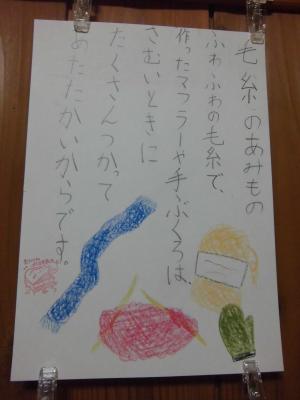 毛糸のあみもの
ふわふわの毛糸で、
作ったマフラーや手ぶくろは、
さむいときに
たくさんつかって
あたたかいからです。